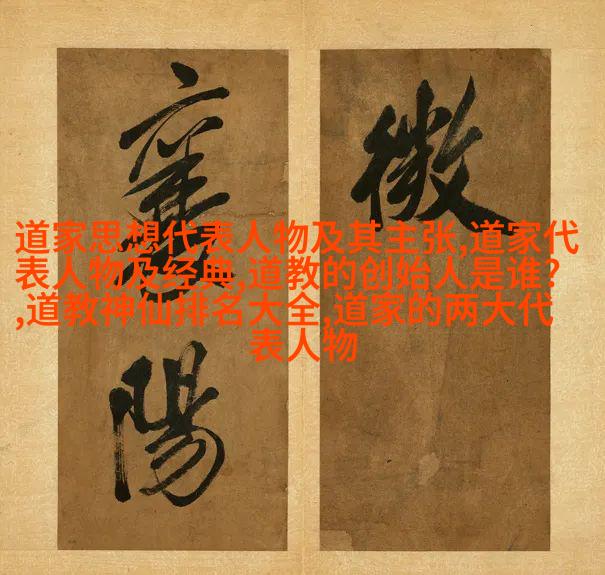 微
襄陽
道家思想代表人物及其主张,道家代
表人物及经典,道教的创始人是谁?
,道教神仙排名大全,道家的两大代
表人物